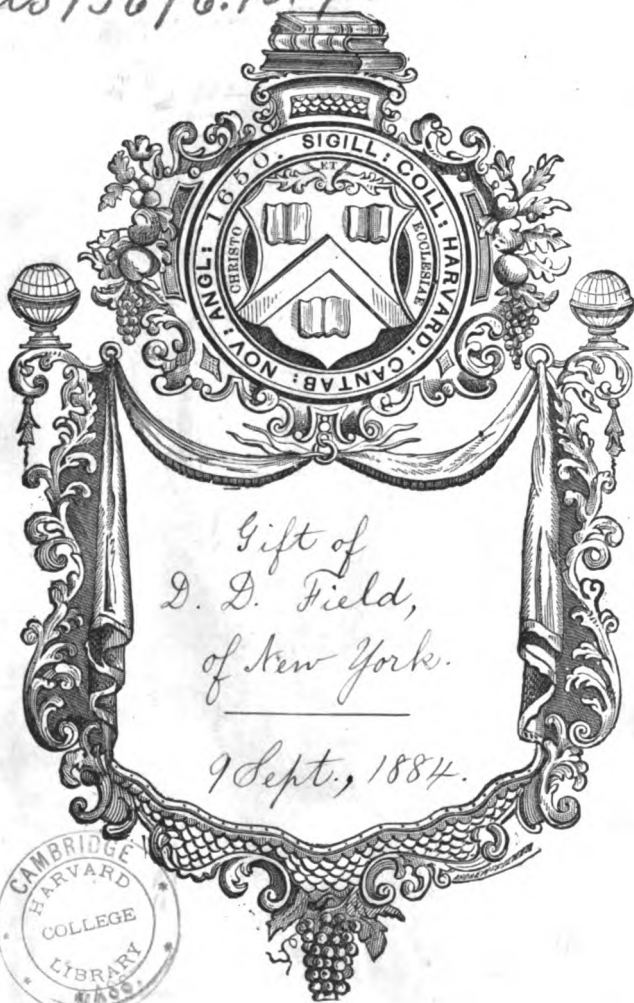 SIGILL: COLL: HARVARD: CANTAB: NOV: ANGL: 1650.
ET
CHRISTO
ECCLESIAE
Gift of
D. D. Field,
of New York.
9 Sept., 1884.
CAMBRIDGE
HARVARD
COLLEGE
LIBRARY